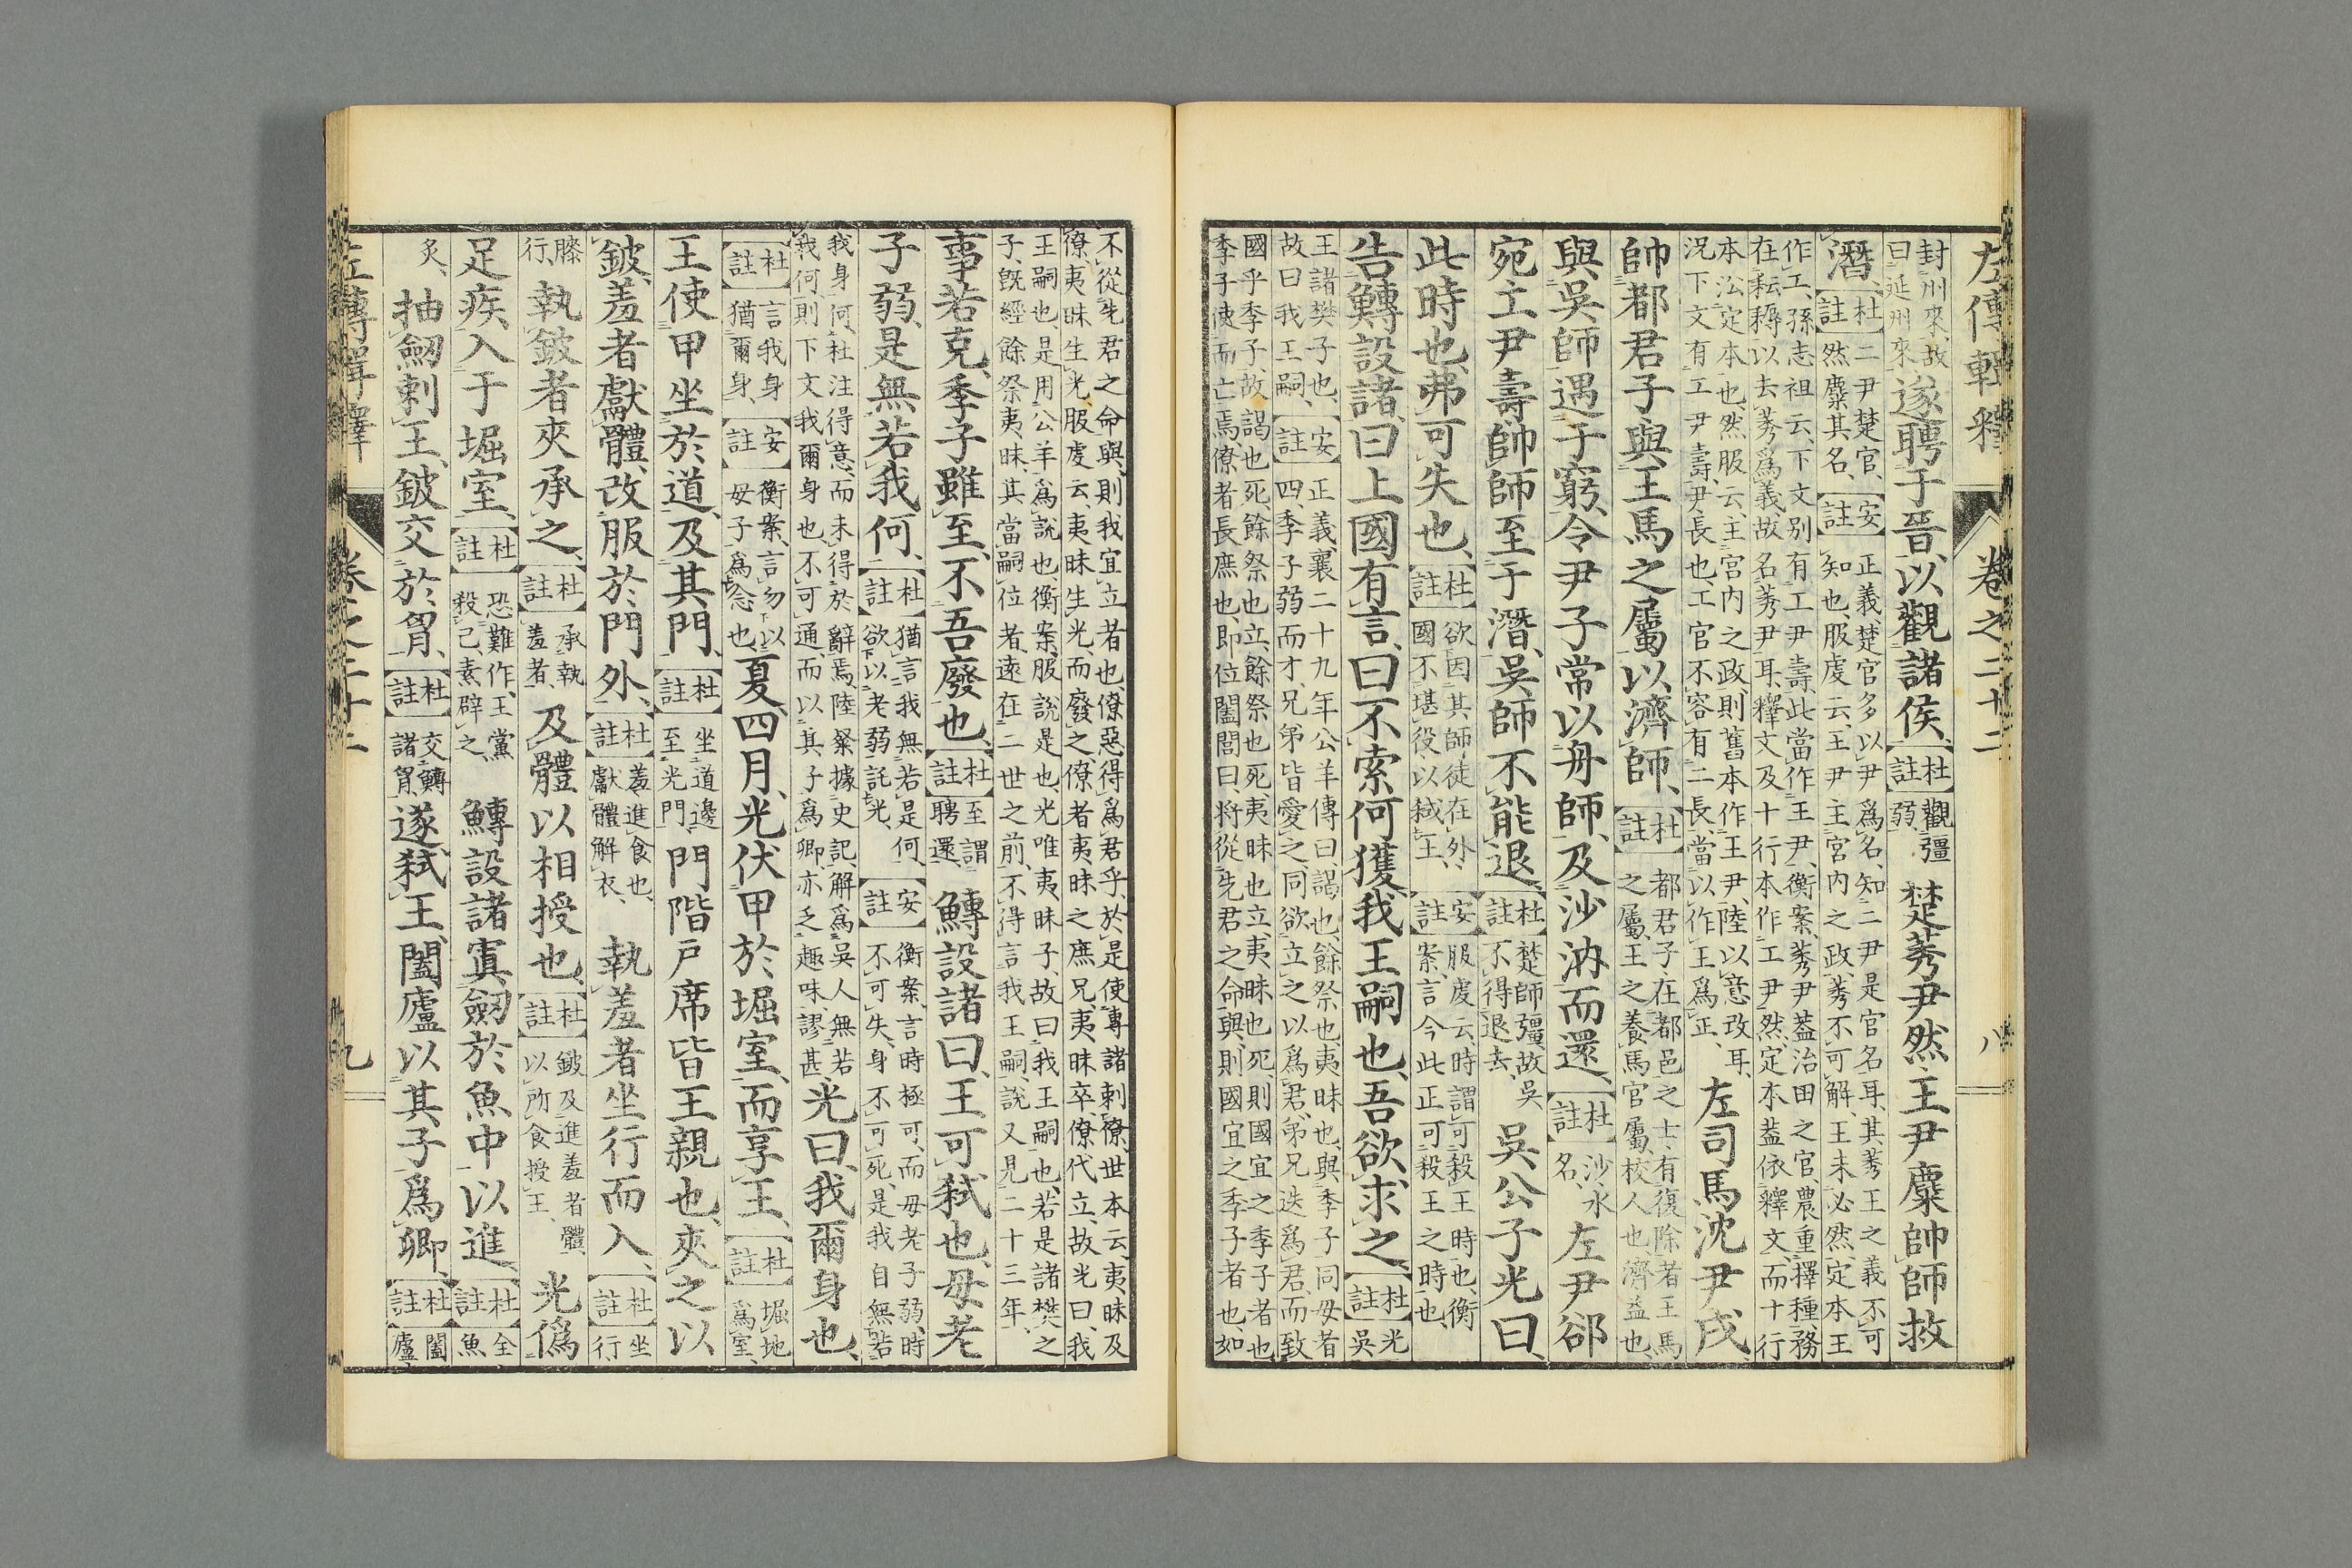 左傳輯釋　卷之二十二　八
封州來、故曰延州來、遂聘于晉、以觀諸侯、【杜註】觀彊弱　楚莠尹然、王尹麇帥師救
潛、【杜註】二尹楚官、然麇其名、【安註】正義、楚官多以尹爲名、知二尹是官名耳、其莠王之義不可知也、服虔云、王尹主宮内之政、莠不可解、王未必然、定本王
作工、孫志祖云、下文別有工尹壽、此當作王尹、衡案、莠尹葢治田之官、農重擇種、務在耘耨以去莠爲義、故名莠尹耳、釋文及十行本作工尹然、定本葢依釋文、而十行
本訟定本也、然服云、主宮内之政、則舊本作王尹、陸以意改耳、況下文有工尹壽、尹長也、工官不容有二長、當以作王爲正、左司馬沈尹戌、
帥都君子與王馬之屬以濟師、【杜註】都君子在都邑之士、有復除者、王馬之屬、王之養馬官屬、校人也、濟益也、
與吳師遇于窮、令尹子常以舟師、及沙汭而還、【杜註】沙水名、左尹郤
宛工尹壽、帥師至于潛、吳師不能退、【杜註】楚師彊、故吳不得退去、吳公子光曰、
此時也、弗可失也、【杜註】欲因其師徒在外、國不堪役、以弒王、【安註】服虔云、時謂可殺王時也、衡案、言今此正可殺王之時也、
告鱄設諸、曰上國有言、曰不索何獲、我王嗣也、吾欲求之、【杜註】光吳
王諸樊子也、故曰我王嗣、【安註】正義襄二十九年公羊傳曰、謁也、餘祭也、夷昧也、與季子同母者四、季子弱而才、兄弟皆愛之、同欲立之以爲君、弟兄迭爲君、而致
國乎季子、故謁也死、餘祭也立、餘祭也死、夷昧也立、夷昧也死、則國宜之季子者也、季子使而亡焉、僚者長庶也、即位、闔閭曰、將從先君之命與、則國宜之季子者也、如
不從先君之命與、則我宜立者也、僚惡得爲君乎、於是使專諸刺僚、世本云、夷昧及僚、夷昧生光、服虔云、夷昧生光、而廢之、僚者夷昧之庶兄、夷昧卒僚代立、故光曰、我
王嗣也、是用公羊爲說也、衡案、服說是也、光唯夷昧子、故曰我王嗣也、若是諸樊之子、旣經餘祭夷昧、其當嗣位者、遠在二世之前、不得言我王嗣、說又見二十三年、
事若克、季子雖至、不吾廢也、【杜註】至謂聘還、鱄設諸曰、王可弒也、母老
子弱、是無若我何、【杜註】猶言我無若是何、欲以老弱託光、【安註】衡案、言時極可、而母老子弱、時不可失、身不可死、是我自無若
我身何、杜注得意、而未得於辭焉、陸粲據史記、解爲吳人無若我何、則下文我爾身也、不可通、而以其子爲卿、亦乏趣味、謬甚、光曰、我爾身也、
【杜註】言我身猶爾身、【安註】衡案、言勿以母子爲念也、夏四月、光伏甲於堀室、而享王、【杜註】堀地爲室、
王使甲坐於道、及其門、【杜註】坐道邊至光門、門階戶席皆王親也、夾之以
鈹、羞者獻體、改服於門外、【杜註】羞進食也、獻體解衣、執羞者坐行而入、【杜註】坐行
膝行、執鈹者夾承之、【杜註】承執羞者、及體以相授也、【杜註】鈹及進羞者體、以所食授王、光僞
足疾、入于堀室、【杜註】恐難作、王黨殺己、素辟之、鱄設諸寘劒於魚中以進、【杜註】全魚
炙、抽劒刺王、鈹交於胷、【杜註】交鱄諸胷、遂弒王、闔廬以其子爲卿、【杜註】闔廬
左傳輯釋　卷之二十二　九